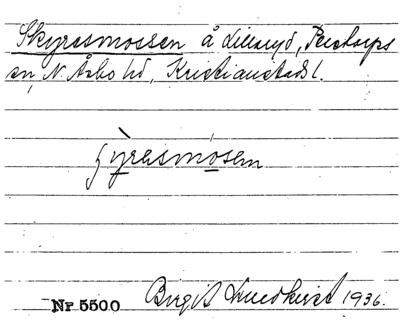 Skyresmossen å Lillaryd, Perstorps
sn, N. Åsbo hd, Kristianstads l.
ʃy̱resmo̱sen
Nr 5500 Birgit Lundkvist 1936.